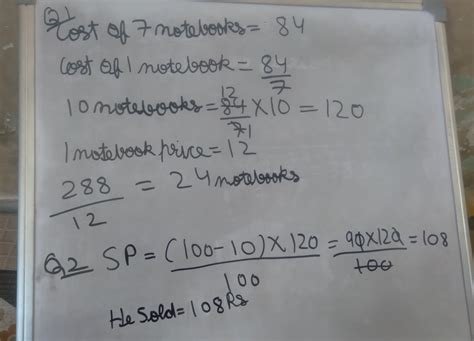 Q1
Cost of 7 notebooks = 84
Cost of 1 notebook = 84/7
10 notebooks = 12 84/7 1 × 10 = 120
1 notebook price = 12
288/12 = 24 notebooks
Q2 SP = (100-10) × 120/100 = 90×120/100 = 108
He Sold = 108 Rs